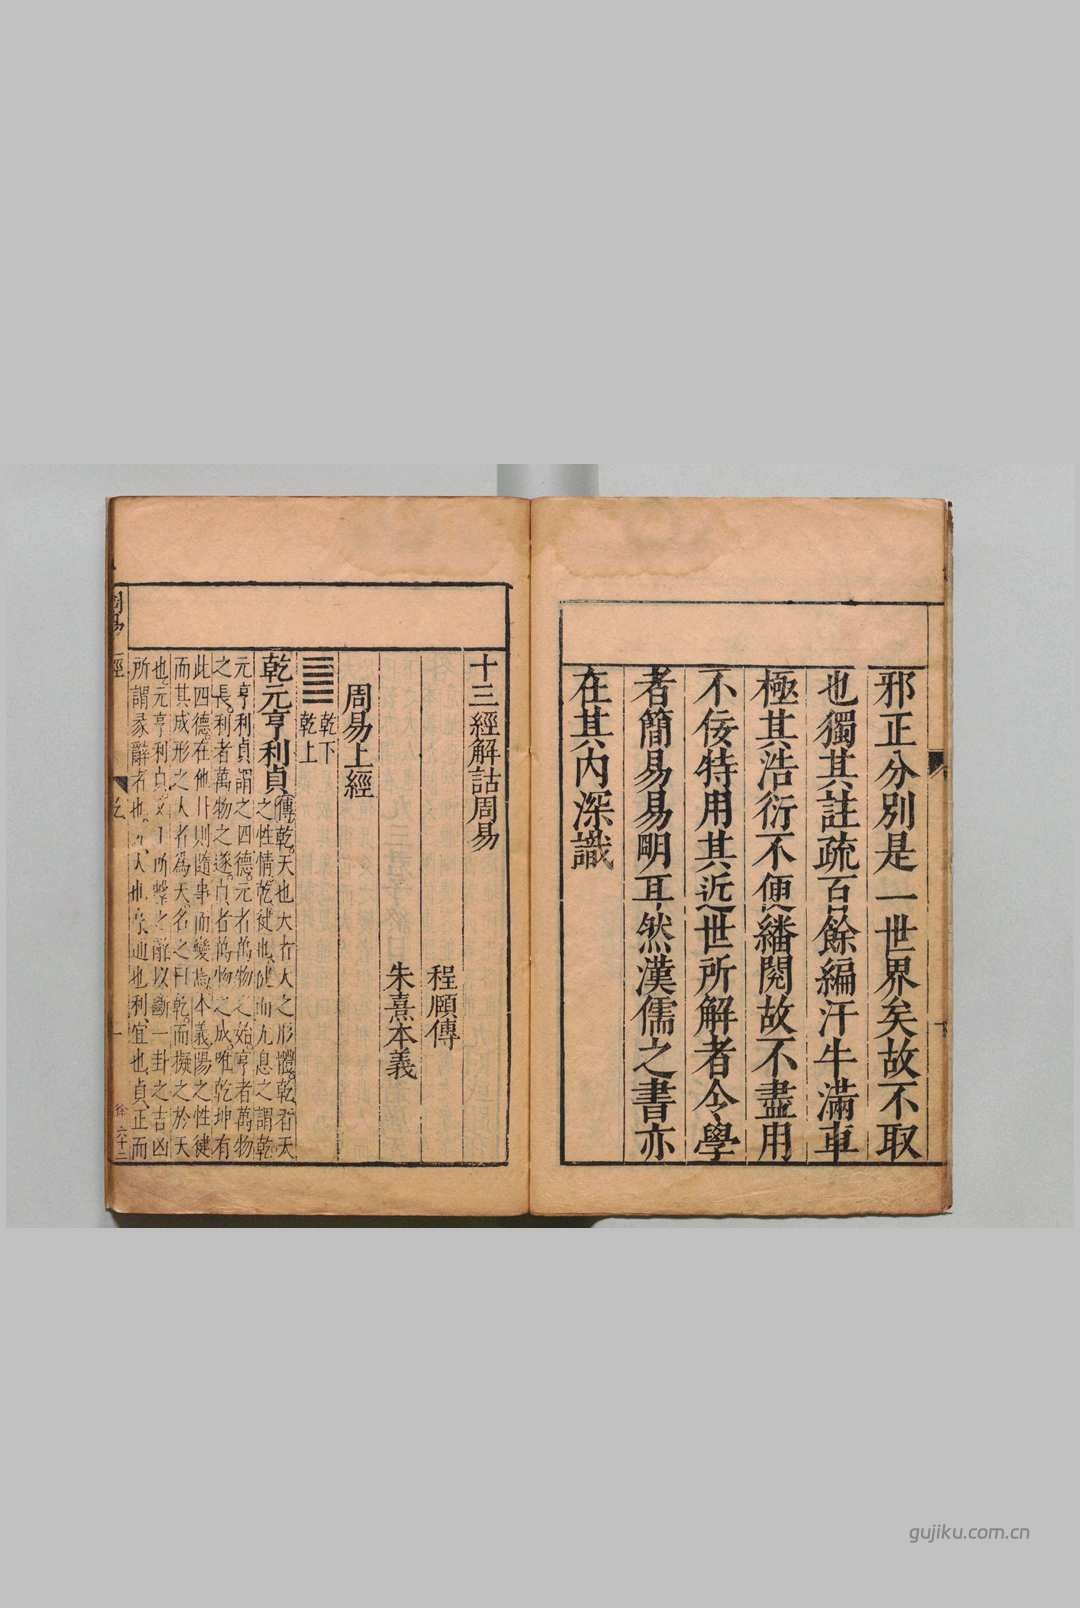 邪正分別是一世界矣故不取
也獨其註疏百餘編汗牛滿車
極其浩衍不便繙閱故不盡用
不佞特用其近世所解者令學
者簡易易明耳然漢儒之書亦
在其內深識
十三經解詁周易
程頤傳
朱熹本義
周易上經
乾下
乾上
乾元亨利貞
傳乾天也天者天之形體乾者天
之性情乾健也健而无息之謂乾
元亨利貞謂之四德元者萬物之始亨者萬物
之長利者萬物之遂貞者萬物之成唯乾坤有
此四德在他卦則隨事而變焉本義陽之性健
而其成形之大者為天名之曰乾而擬之於天
也元亨利貞文王所繫之辭以斷一卦之吉凶
所謂彖辭者也元大也亨通也利宜也貞正而
周易
經
乾
一
徐
六十二
gujiku.com.cn